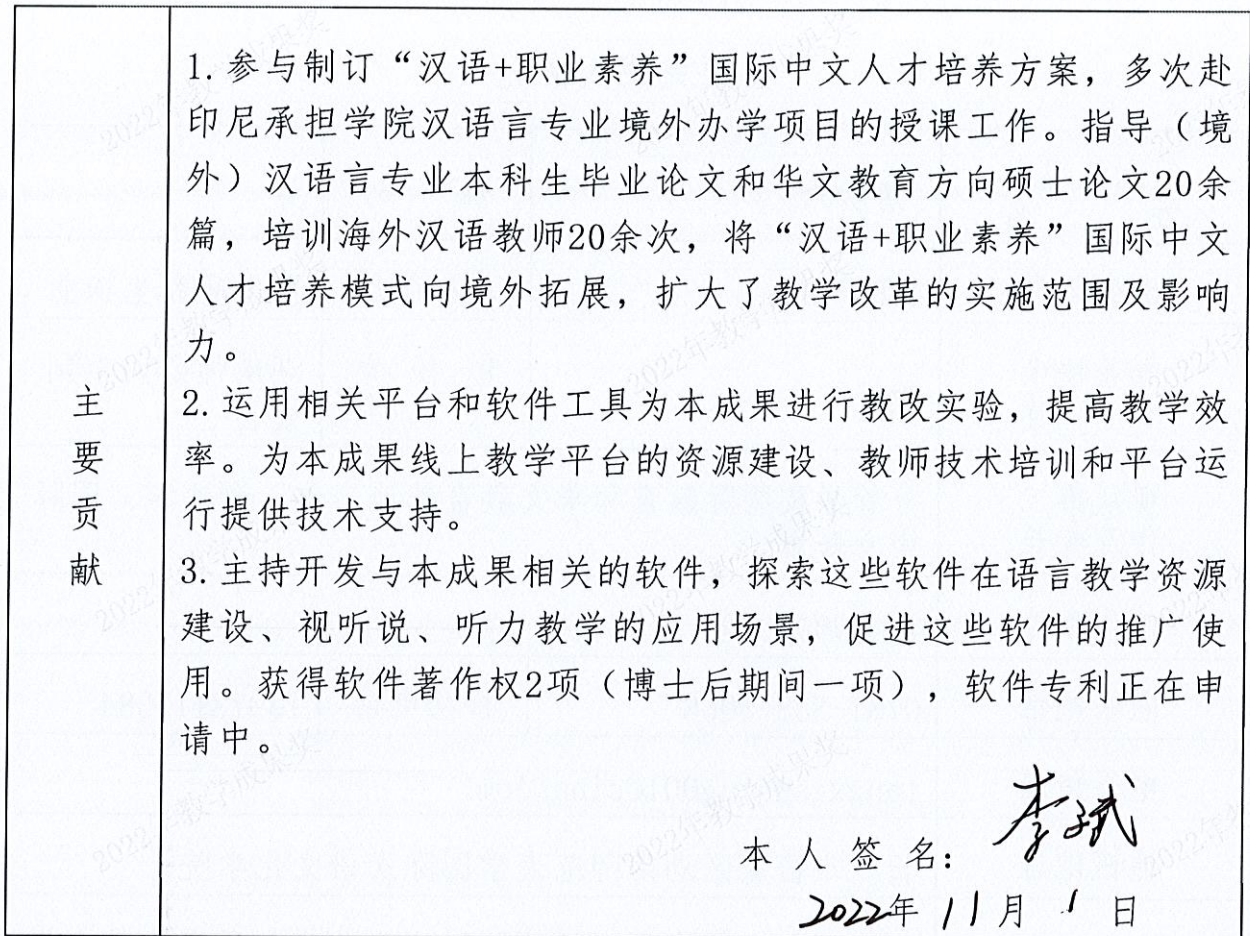 1.参与制订“汉语+职业素养”国际中文人才培养方案，多次赴
印尼承担学院汉语言专业境外办学项目的授课工作。指导（境
外）汉语言专业本科生毕业论文和华文教育方向硕士论文20余
篇，培训海外汉语教师20余次，将“汉语+职业素养”国际中文
人才培养模式向境外拓展，扩大了教学改革的实施范围及影响
力。
主要贡献
2.运用相关平台和软件工具为本成果进行教改实验，提高教学效
率。为本成果线上教学平台的资源建设、教师技术培训和平台运
行提供技术支持。
3.主持开发与本成果相关的软件，探索这些软件在语言教学资源
建设、视听说、听力教学的应用场景，促进这些软件的推广使
用。获得软件著作权2项（博士后期间一项），软件专利正在申
请中。
本人签名：李斌
2022年11月1日
2022年教学成果奖